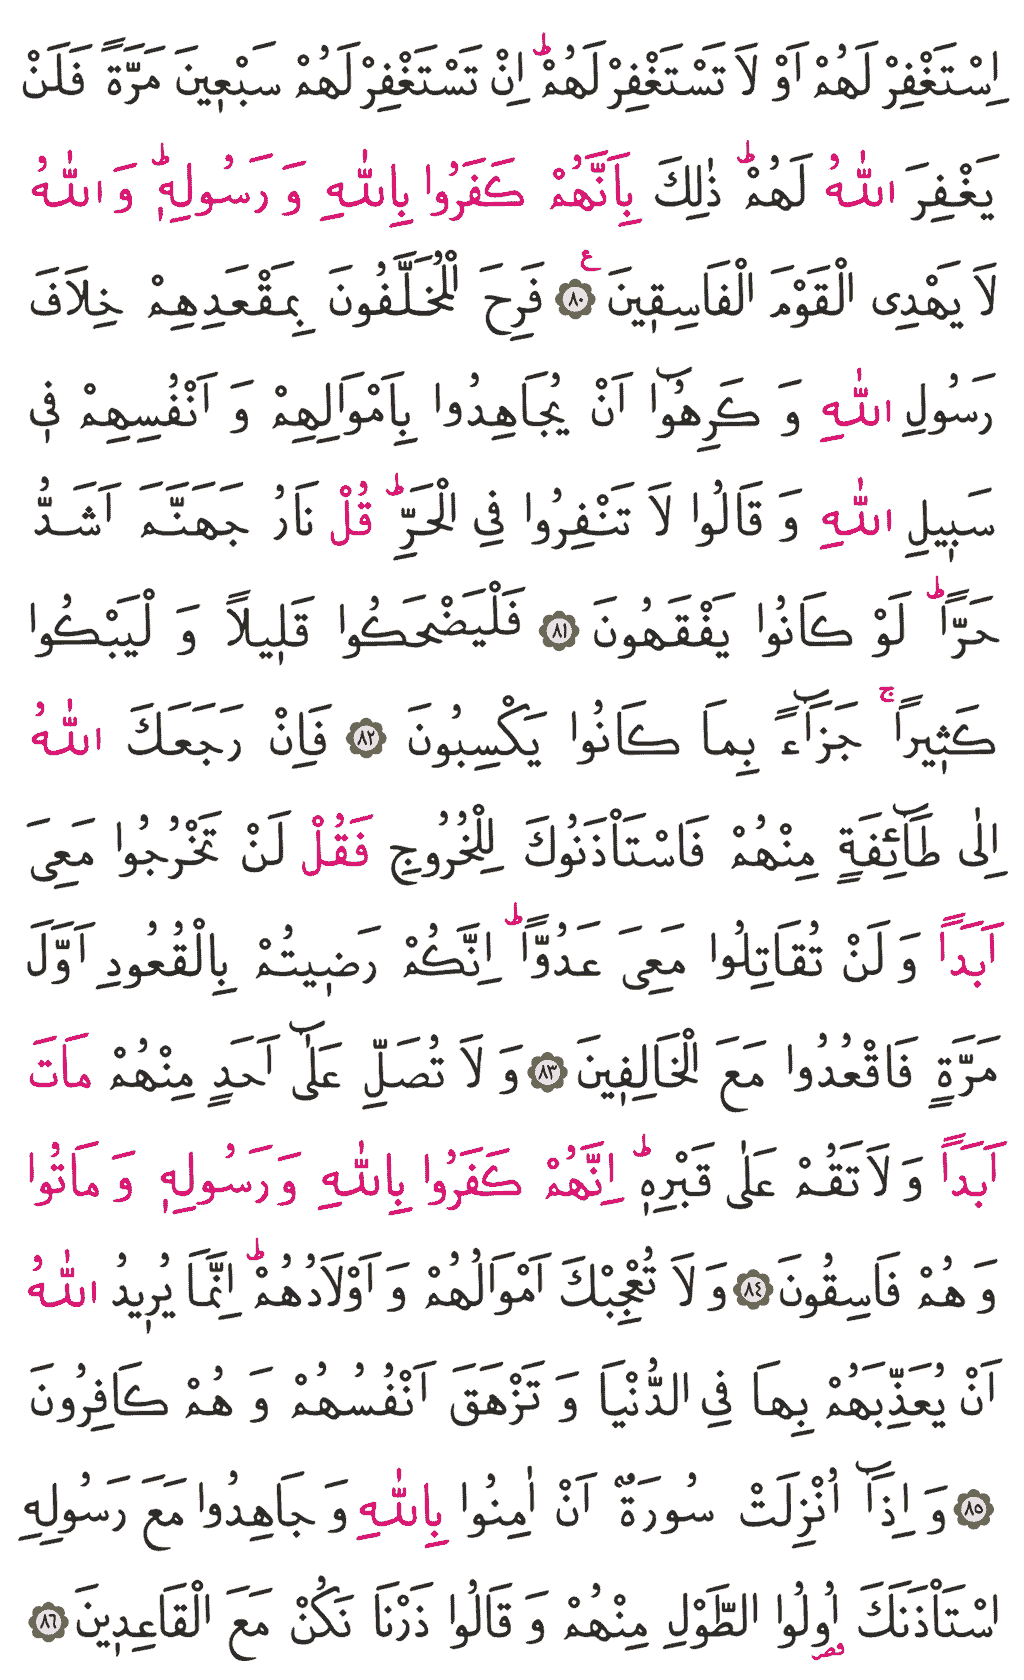 اِسْتَغْفِرْ لَهُمْ اَوْ لَا تَسْتَغْفِرْ لَهُمْۜ اِنْ تَسْتَغْفِرْ لَهُمْ سَبْعٖينَ مَرَّةً فَلَنْ
يَغْفِرَ اللّٰهُ لَهُمْۜ ذٰلِكَ بِاَنَّهُمْ كَفَرُوا بِاللّٰهِ وَ رَسُولِهٖۜ وَ اللّٰهُ
لَا يَهْدِى الْقَوْمَ الْفَاسِقٖينَ ࣖ ﴿٨٠﴾ فَرِحَ الْمُخَلَّفُونَ بِمَقْعَدِهِمْ خِلَافَ
رَسُولِ اللّٰهِ وَ كَرِهُٓوا اَنْ يُجَاهِدُوا بِاَمْوَالِهِمْ وَ اَنْفُسِهِمْ فٖى
سَبٖيلِ اللّٰهِ وَ قَالُوا لَا تَنْفِرُوا فِى الْحَرِّۜ قُلْ نَارُ جَهَنَّمَ اَشَدُّ
حَرًّاۜ لَوْ كَانُوا يَفْقَهُونَ ﴿٨١﴾ فَلْيَضْحَكُوا قَلٖيلًا وَ لْيَبْكُوا
كَثٖيرًاۚ جَزَٓاءً بِمَا كَانُوا يَكْسِبُونَ ﴿٨٢﴾ فَاِنْ رَجَعَكَ اللّٰهُ
اِلٰى طَٓائِفَةٍ مِنْهُمْ فَاسْتَاْذَنُوكَ لِلْخُرُوجِ فَقُلْ لَنْ تَخْرُجُوا مَعِىَ
اَبَدًا وَ لَنْ تُقَاتِلُوا مَعِىَ عَدُوًّاۜ اِنَّكُمْ رَضٖيتُمْ بِالْقُعُودِ اَوَّلَ
مَرَّةٍ فَاقْعُدُوا مَعَ الْخَالِفٖينَ ﴿٨٣﴾ وَ لَا تُصَلِّ عَلٰٓى اَحَدٍ مِنْهُمْ مَاتَ
اَبَدًا وَ لَا تَقُمْ عَلٰى قَبْرِهٖۜ اِنَّهُمْ كَفَرُوا بِاللّٰهِ وَ رَسُولِهٖ وَ مَاتُوا
وَ هُمْ فَاسِقُونَ ﴿٨٤﴾ وَ لَا تُعْجِبْكَ اَمْوَالُهُمْ وَ اَوْلَادُهُمْۜ اِنَّمَا يُرٖيدُ اللّٰهُ
اَنْ يُعَذِّبَهُمْ بِهَا فِى الدُّنْيَا وَ تَزْهَقَ اَنْفُسُهُمْ وَ هُمْ كَافِرُونَ
﴿٨٥﴾ وَ اِذَٓا اُنْزِلَتْ سُورَةٌ اَنْ اٰمِنُوا بِاللّٰهِ وَ جَاهِدُوا مَعَ رَسُولِهِ
اسْتَاْذَنَكَ اُولُوا الطَّوْلِ مِنْهُمْ وَ قَالُوا ذَرْنَا نَكُنْ مَعَ الْقَاعِدٖينَ ﴿٨٦﴾
قصر